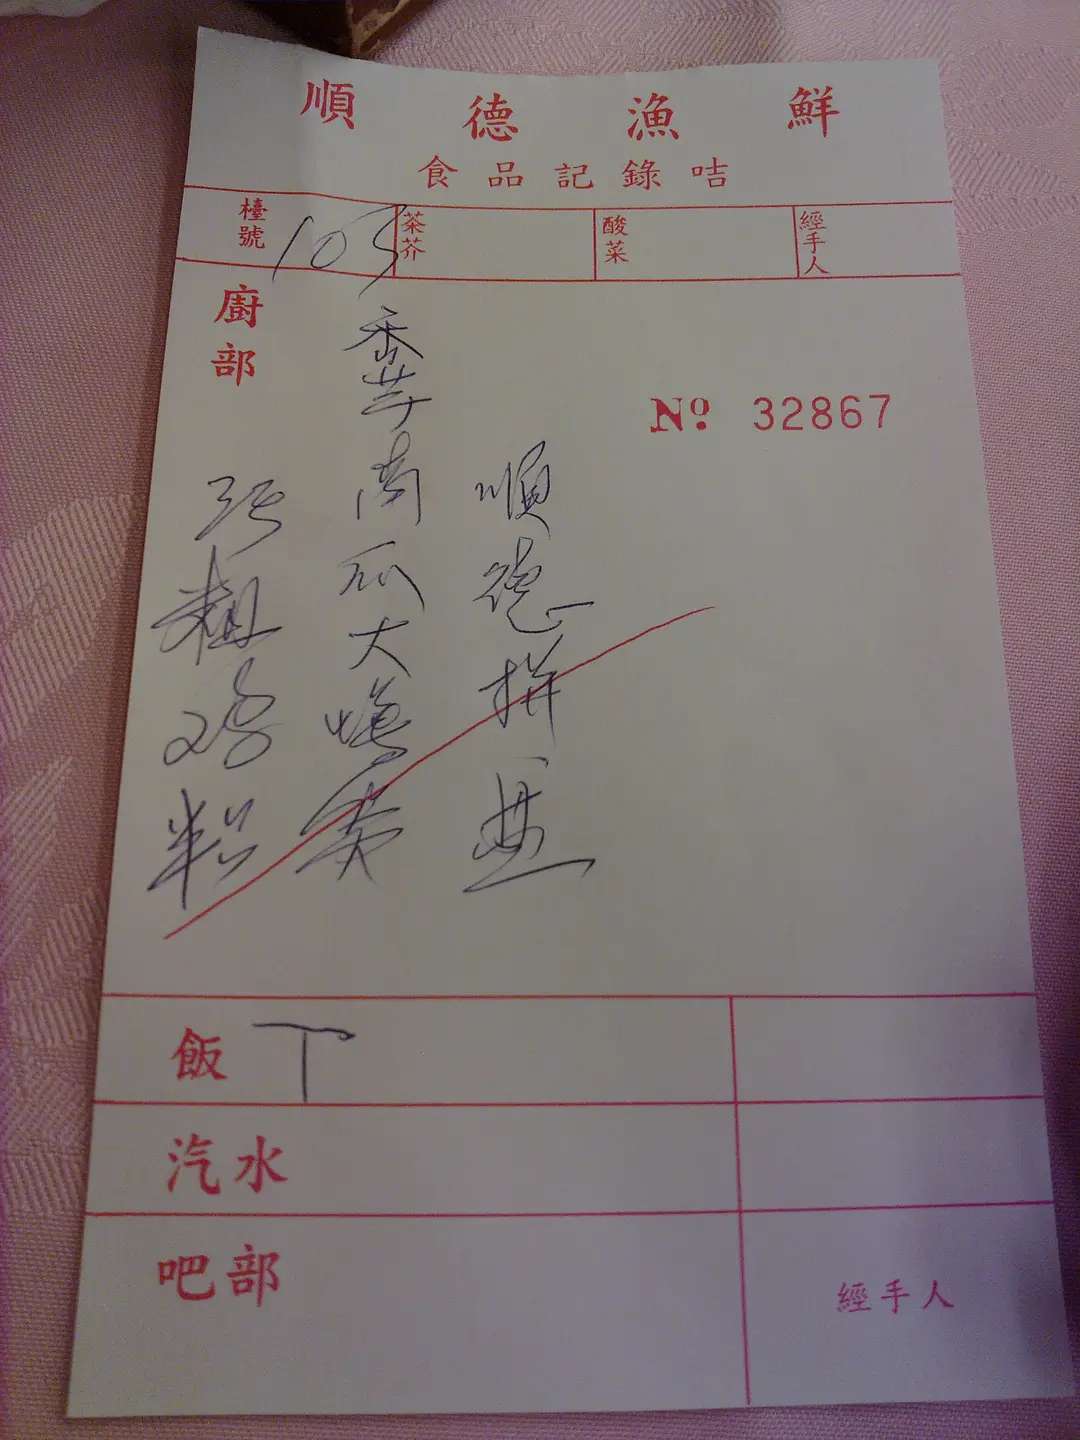 順德漁鮮
食品記錄咭
檯號 103
茶芥
酸菜
經手人
廚部
No. 32867
順德拼盤
香芋南瓜大
鸡
飯 丁
汽水
吧部
經手人